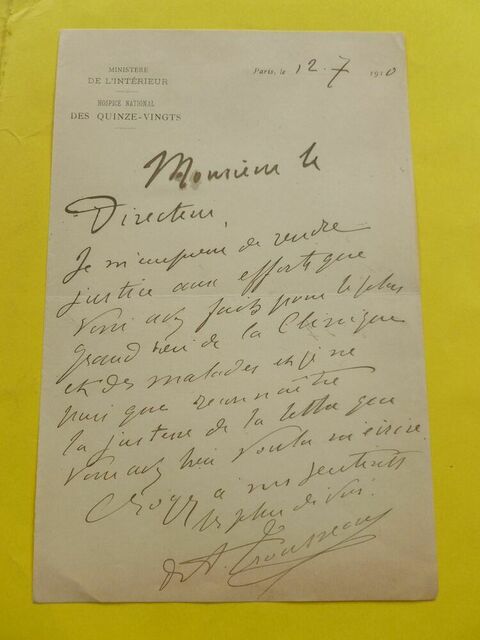 MINISTÈRE
DE L'INTÉRIEUR
HOSPICE NATIONAL
DES QUINZE-VINGTS
Paris, le 12.7 1910
Monsieur le
Directeur,
Je m'empresse de rendre
justice aux efforts que
vous avez faits pour le plus
grand bien de la Clinique
et des malades et je ne
puis que reconnaître
la justesse de la lettre que
vous avez bien voulu m'écrire.
Croyez à mes sentiments
les plus dévoués.
Dr A. Trousseau